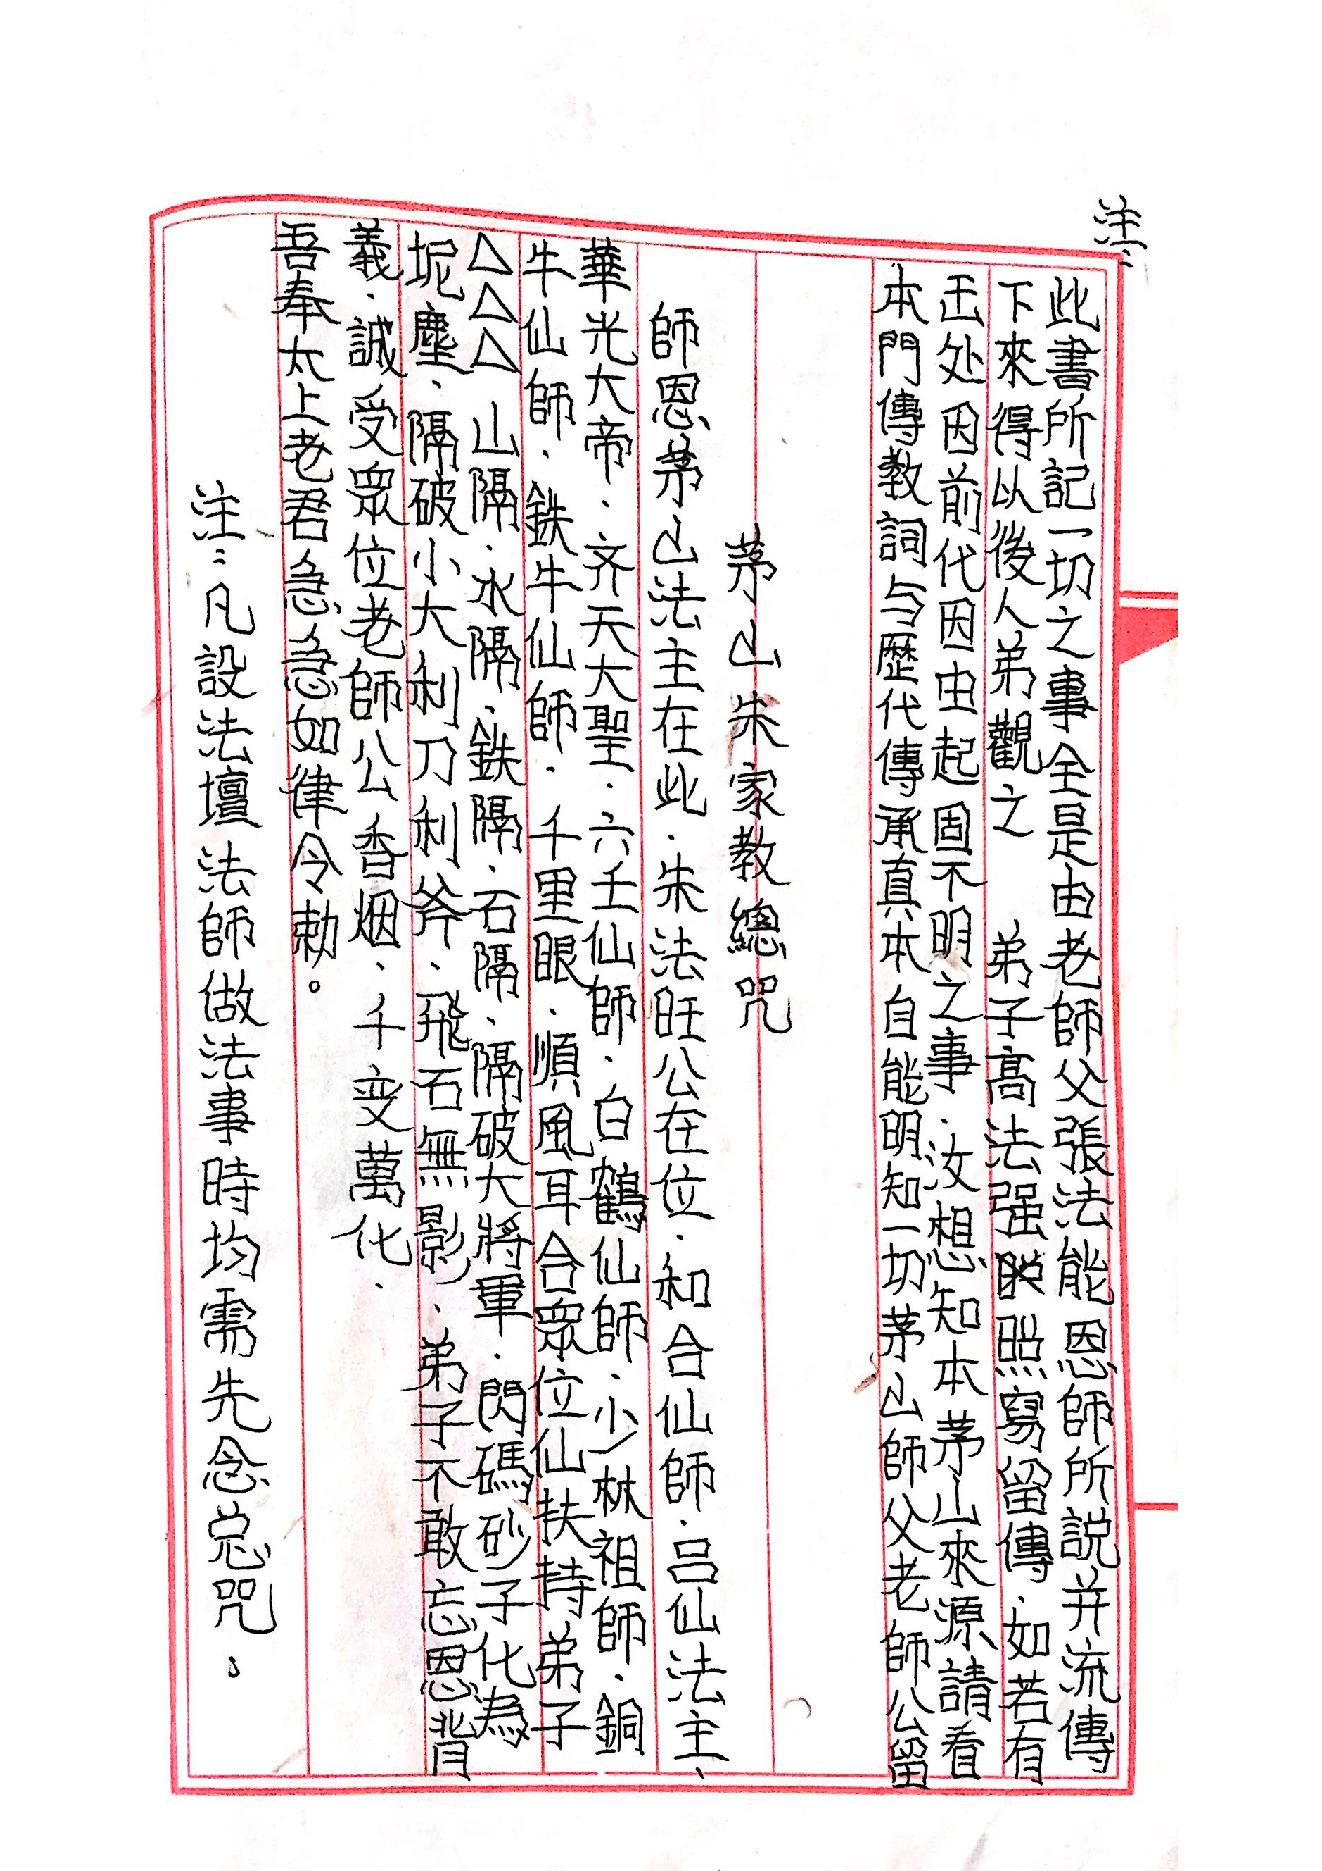 注：
此書所記一切之事全是由老師父張法能恩師所説并流傳
下來得以後人弟觀之　弟子高法强照寫留傳．如若有
王处因前代因由起固不明之事．汝想知本茅山來源請看
本門傳教詞与歷代傳承真本自能明知一切茅山師父老師公留
茅山朱家教總咒
師恩茅山法主在此．朱法旺公在位．和合仙師．吕仙法主、
華光大帝．齐天大聖．六壬仙師．白鶴仙師．小林祖師．銅
牛仙師．鉄牛仙師．千里眼．順風耳合眾位仙扶持弟子
△△△山隔．水隔．鉄隔．石隔．隔破大將軍．閃碼砂子化為
坭塵．隔破小大利刀利斧．飛石無影．弟子不敢忘恩背
義．誠受眾位老師公香烟．千变萬化．
吾奉太上老君急急如律令勅。
注：凡設法壇法師做法事時均需先念总咒。